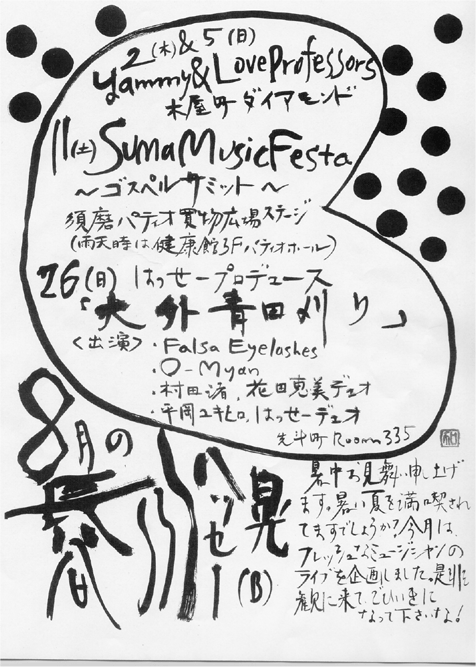 2(木)&5(日)
yammy&LoveProfessors
木屋町ダイアモンド
11(土)SumaMusicFesta
～ゴスペルサミット～
須磨パティオ買物広場ステージ
(雨天時は健康館3Fパティオホール)
26(日)はっせープロデュース
「大外青田刈り」
<出演>・Falsa Eyelashes
・O-Myan
・村田渚、花田恵美デュオ
・平岡ユキヒロ、はっせーデュオ
先斗町 Room335
8月の
長谷川晃
ハッセー(B)
暑中お見舞い申し上げ
ます。暑い夏を満喫され
てますでしょうか?今月は、
フレッシュなミュージシャンの
ライブを企画しました。是非
観に来て、ごひいきに
なって下さいな!